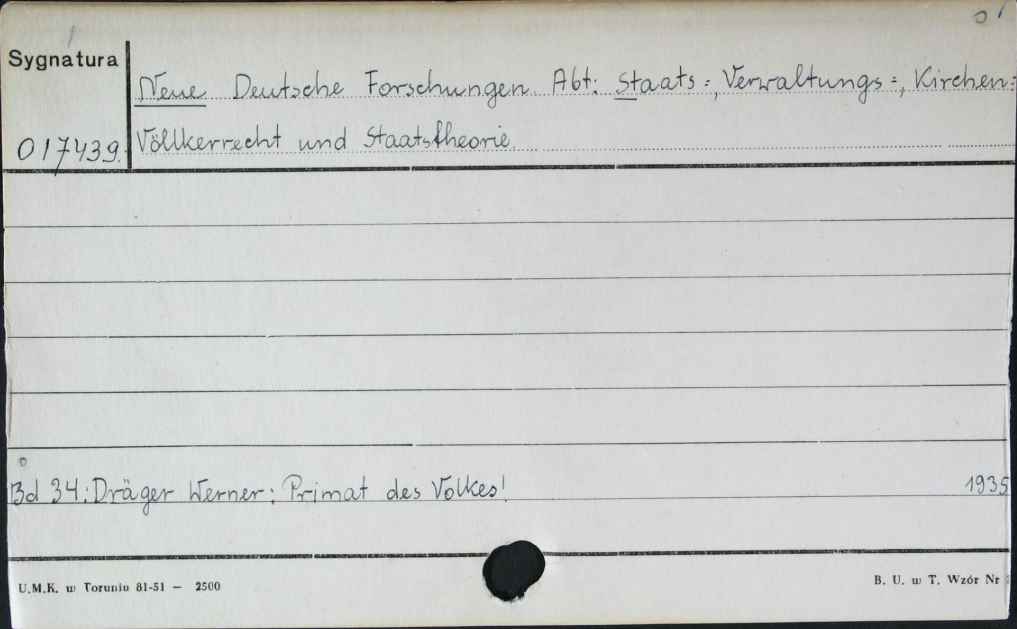 Sygnatura
Neue Deutsche Forschungen Abt: Staats=, Verwaltungs=, Kirchen=
017439. Völlkerrecht und Staatstheorie
Bd 34: Dräger Werner: Primat des Volkes! 1935
U.M.K. w Toruniu 81-51 — 2500 B. U. w T. Wzór Nr